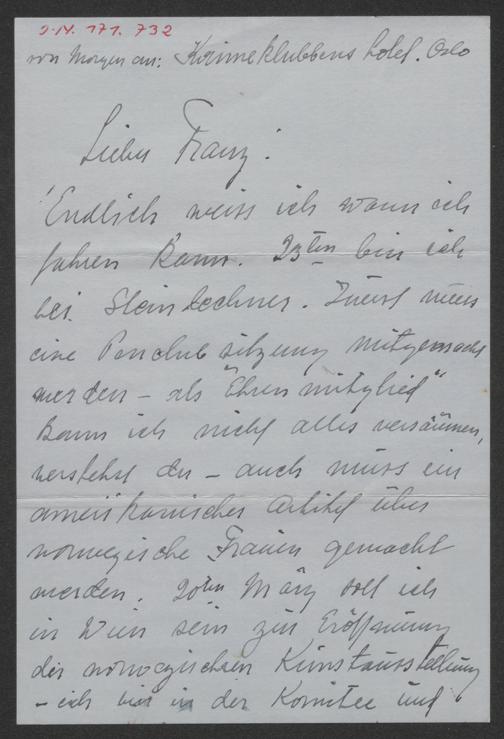 I.N. 171.732
von Morgen an: Kvinneklubbens hotel. Oslo
Lieber Franz:
Endlich weiss ich wann ich
fahren kann. 23ten bin ich
bei Steindechner. Zuerst muss
eine Penclub sitzung mitgemacht
werden – als "Ehrenmitglied"
kann ich nicht alles versäumen,
verstehst du – auch muss ein
amerikanischer Artikel über
norwegische Frauen gemacht
werden. 20ten März soll ich
in Wien sein zur Eröffnung
der norwegischen Kunstausstellung
– ich bin in der Komitee und